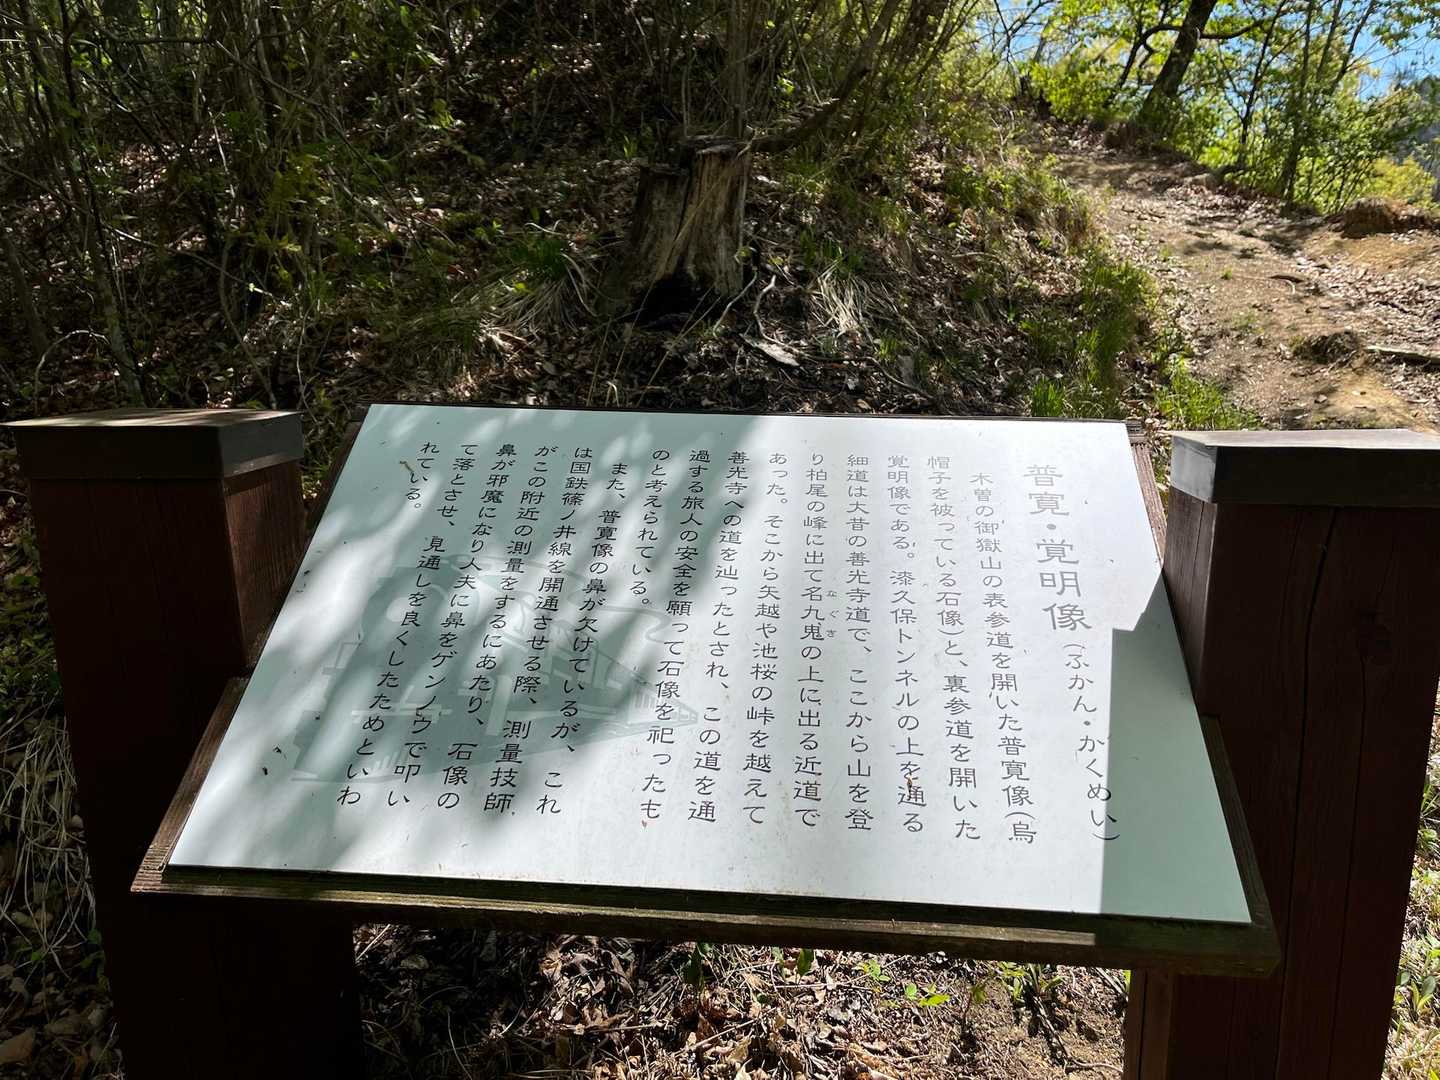 普寛・覚明像(ふかん・かくめい)
木曽の御嶽山の表参道を開いた普寛像(烏
帽子を被っている石像)と、裏参道を開いた
覚明像である。漆久保トンネルの上を通る
細道は大昔の善光寺道で、ここから山を登
り柏尾の峰に出て名九鬼の上に出る近道で
なぐき
あった。そこから矢越や池桜の峠を越えて
善光寺への道を辿ったとされ、この道を通
過する旅人の安全を願って石像を祀ったも
のと考えられている。
また、普寛像の鼻が欠けているが、これ
は国鉄篠ノ井線を開通させる際、測量技師
がこの附近の測量をするにあたり、石像の
鼻が邪魔になり人夫に鼻をゲンノウで叩い
て落とさせ、見通しを良くしたためといわ
れている。